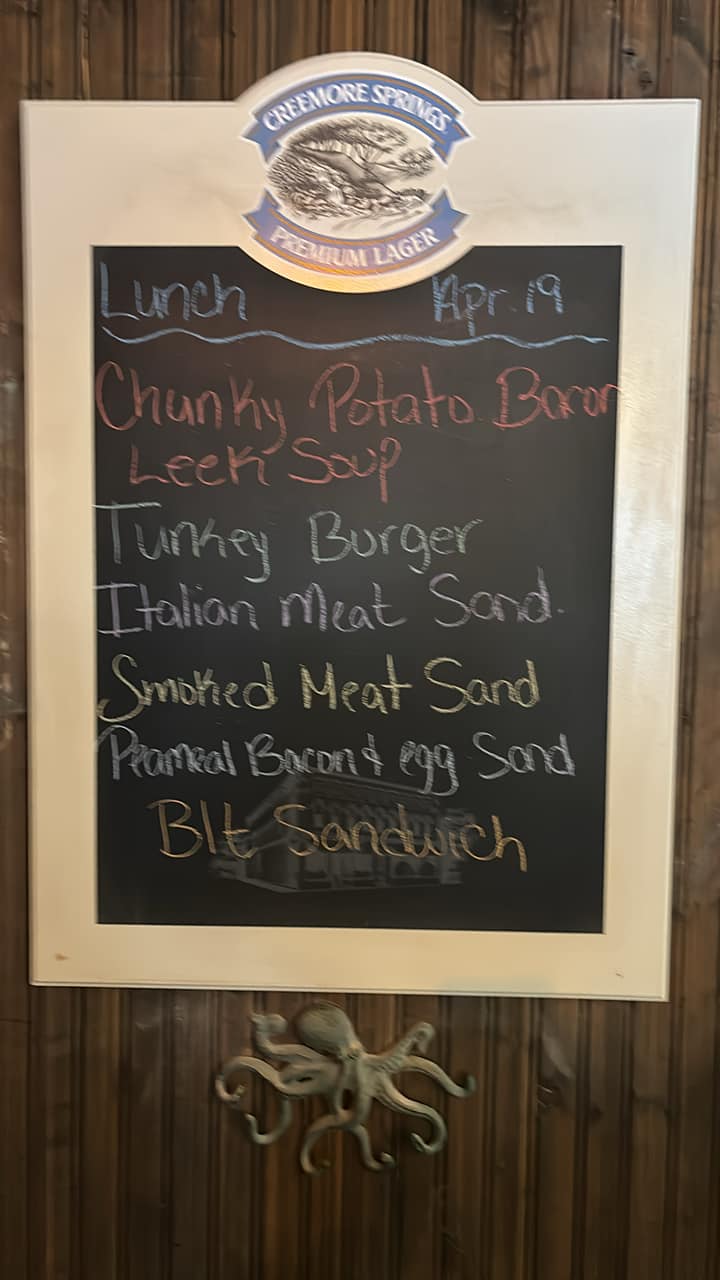 CREEMORE SPRINGS
PREMIUM LAGER
Lunch Apr. 19
Chunky Potato Bacon
Leek Soup
Turkey Burger
Italian Meat Sand.
Smoked Meat Sand
Peameal Bacon & egg Sand
Blt Sandwich